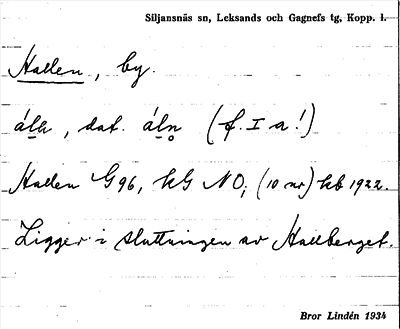 Siljansnäs sn, Leksands och Gagnefs tg, Kopp. l.
Hallen, by.
áln, dat. áln̥ (f. I a!)
Hallen G 96, kG NO; (10 nr) hb 1922.
Ligger i sluttningen av Hallberget.
Bror Lindén 1934